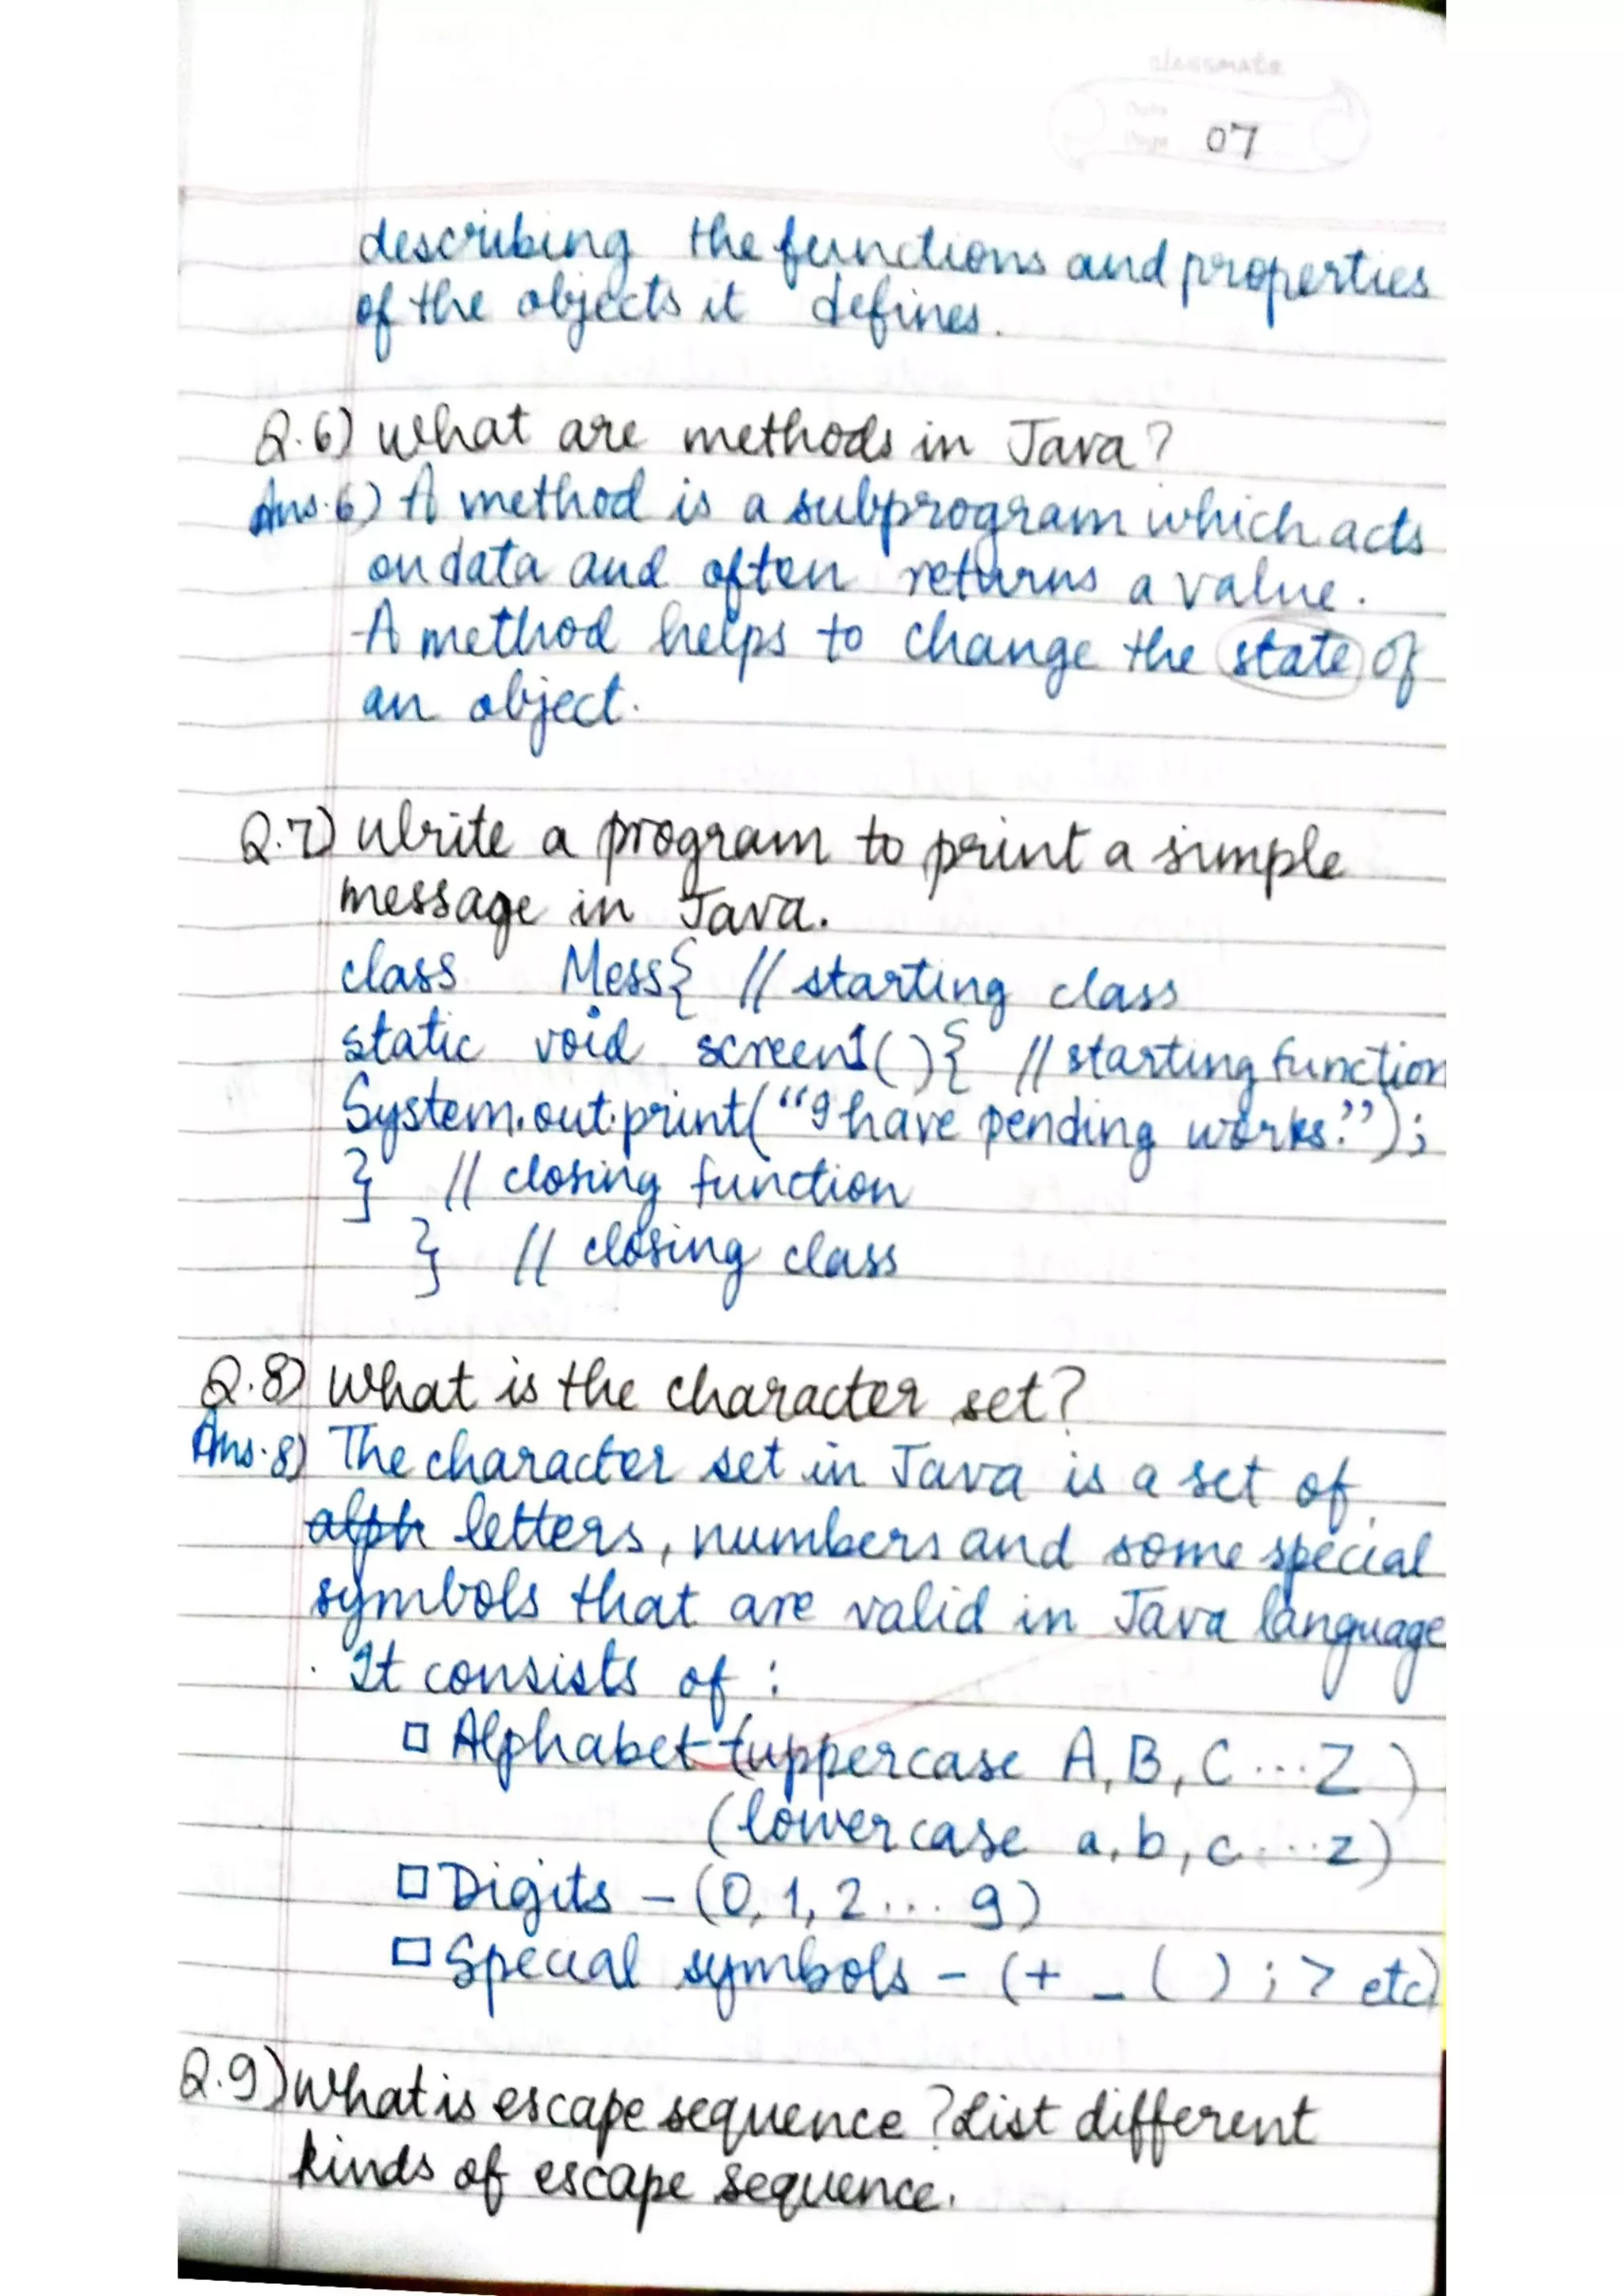 classmate
Date
Page 07
describing the functions and properties
of the objects it defines.
Q.6) What are methods in Java?
Ans.6) A method is a subprogram which acts
on data and often returns a value.
A method helps to change the state of
an object.
Q.7) Write a program to print a simple
message in Java.
class Mess{ // starting class
static void screen1(){ // starting function
System.out.print("I have pending works.");
} // closing function
} // closing class
Q.8) What is the character set?
Ans.8) The character set in Java is a set of
alph letters, numbers and some special
symbols that are valid in Java language
. It consists of :
□ Alphabet (uppercase A, B, C ... Z )
(lowercase a, b, c ... z)
□ Digits – (0, 1, 2 ... 9)
□ Special symbols – (+ _ ( ) ; > etc)
Q.9) What is escape sequence ? List different
kinds of escape sequence.